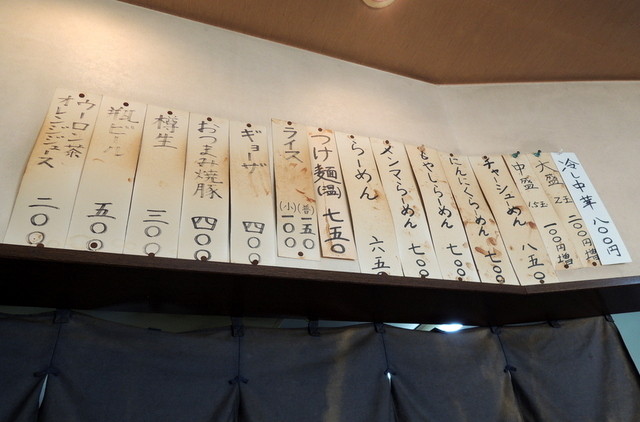 冷し中華 八〇〇円
大盛 2玉 二〇〇円増
中盛 1.5玉 一〇〇円増
チャーシューめん 八五〇
にんにくらーめん 七〇〇
もやしらーめん 七〇〇
メンマらーめん 七〇〇
らーめん 六五〇
つけ麺(温) 七五〇
ライス (普)一五〇
(小)一〇〇
ギョーザ 四〇〇
おつまみ焼豚 四〇〇
樽生 三〇〇
瓶ビール 五〇〇
ウーロン茶
オレンジジュース 二〇〇